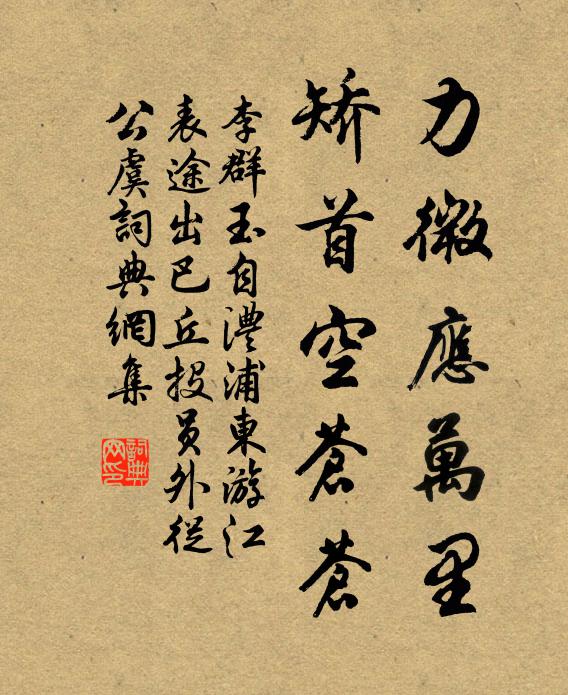 力微應萬里
矯首空蒼蒼
李群玉自澧浦東游江
表途出巴丘投员外從
公虞詞典網集
詞典
网印